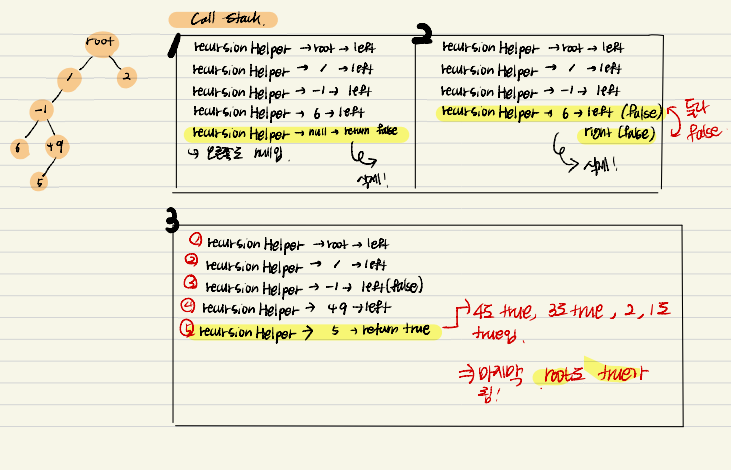 Call Stack.
root
1
2
-1
6
49
5
1
recursion Helper → root → left
recursion Helper → 1 → left
recursion Helper → -1 → left
recursion Helper → 6 → left
recursion Helper → null → return false
↳ 왼쪽도 null임.
삭제!
2
recursion Helper → root → left
recursion Helper → 1 → left
recursion Helper → -1 → left
recursion Helper → 6 → left (false)
right (false)
둘다
false
삭제!
3
① recursion Helper → root → left
② recursion Helper → 1 → left
③ recursion Helper → -1 → left (false)
④ recursion Helper → 49 → left
⑤ recursion Helper → 5 → return true
4도 true, 3도 true, 2, 1도
true임.
⇒ 마지막 root도 true가
됨!